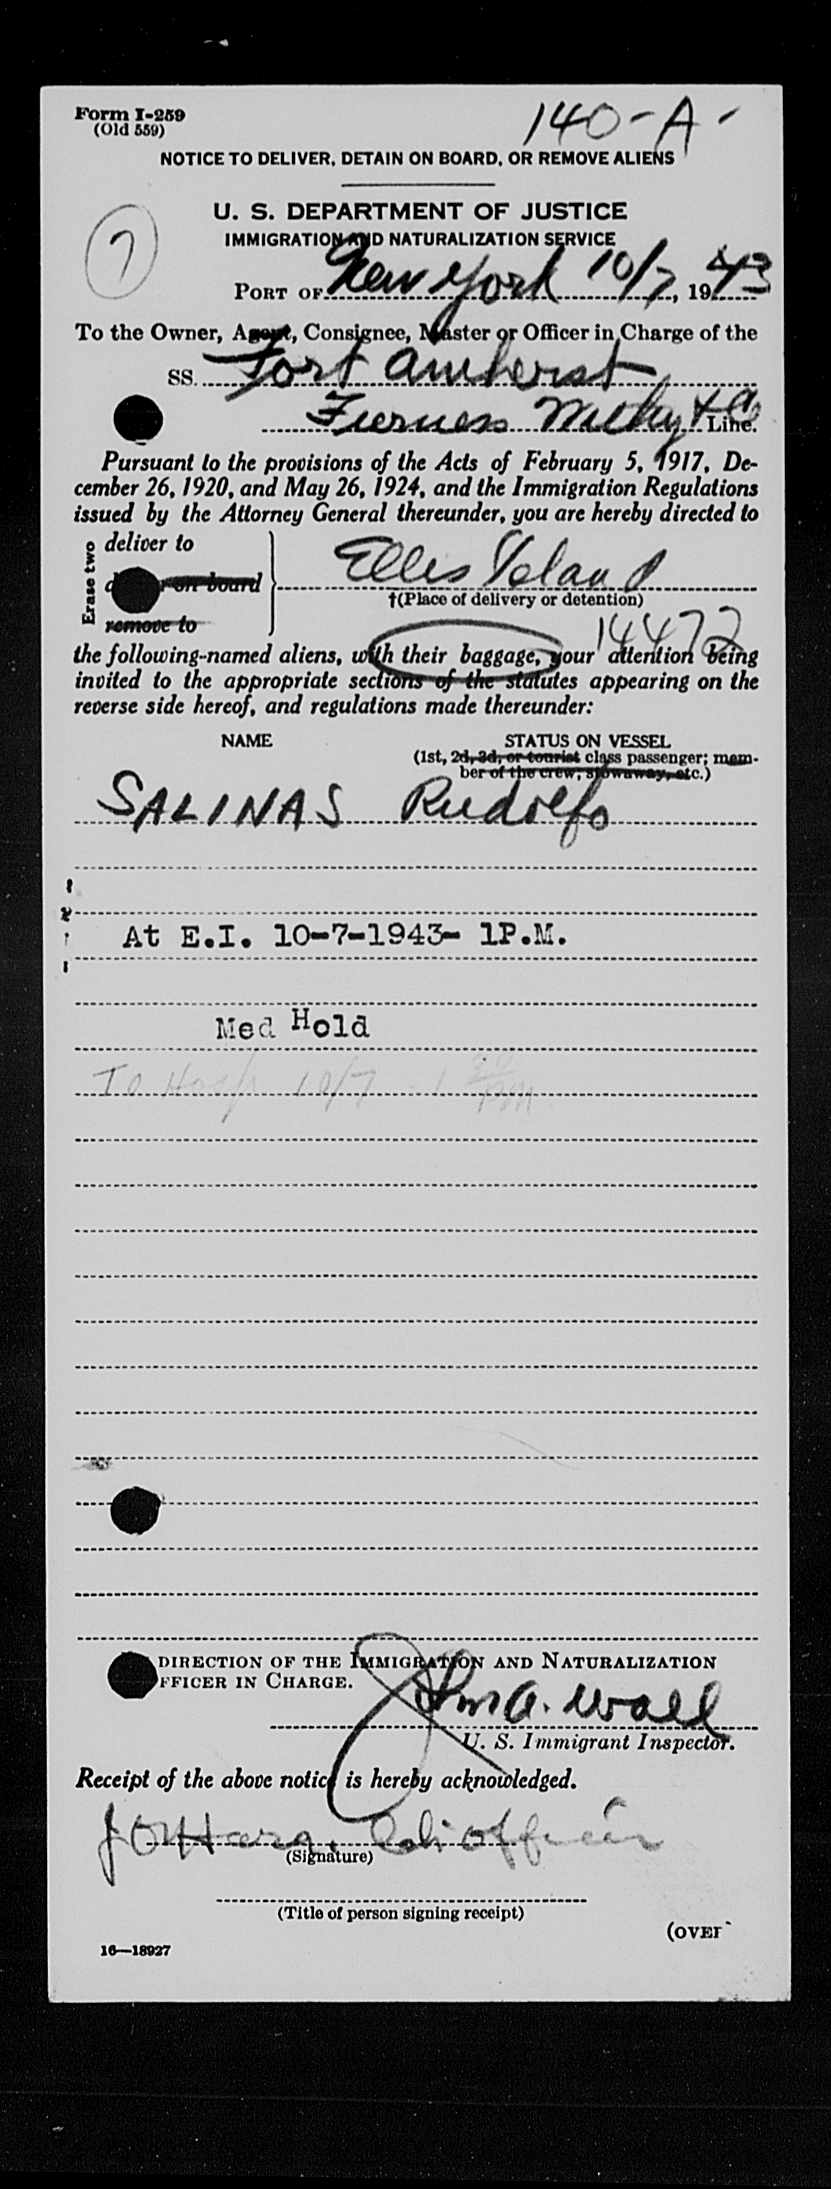 Form I-259
(Old 559)
140-A-
NOTICE TO DELIVER, DETAIN ON BOARD, OR REMOVE ALIENS
U. S. DEPARTMENT OF JUSTICE
IMMIGRATION AND NATURALIZATION SERVICE
7
PORT OF New York 10/7, 1943
To the Owner, Agent, Consignee, Master or Officer in Charge of the
SS. Fort Amherst
Furness Withy & Co Line.
Pursuant to the provisions of the Acts of February 5, 1917, De-
cember 26, 1920, and May 26, 1924, and the Immigration Regulations
issued by the Attorney General thereunder, you are hereby directed to
Erase two
deliver to
on board
remove to
Ellis Island
†(Place of delivery or detention)
14472
the following-named aliens, with their baggage, your attention being
invited to the appropriate sections of the statutes appearing on the
reverse side hereof, and regulations made thereunder:
NAME STATUS ON VESSEL
(1st, 2d, 3d, or tourist class passenger; mem-
ber of the crew; stowaway, etc.)
SALINAS Rudolfo
At E.I. 10-7-1943- 1P.M.
Med Hold
To Hosp 10/7 - 1 PM
DIRECTION OF THE IMMIGRATION AND NATURALIZATION
FFICER IN CHARGE.
A. Wall
U. S. Immigrant Inspector.
Receipt of the above notice is hereby acknowledged.
J O'Hara
(Signature)
(Title of person signing receipt)
(OVER
16—18927